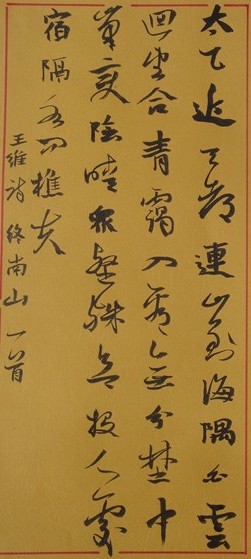 太乙近天都連山到海隅白雲
迴望合青靄入看無分埜中
峯變陰晴眾壑殊欲投人處
宿隔水問樵夫
王維詩終南山一首